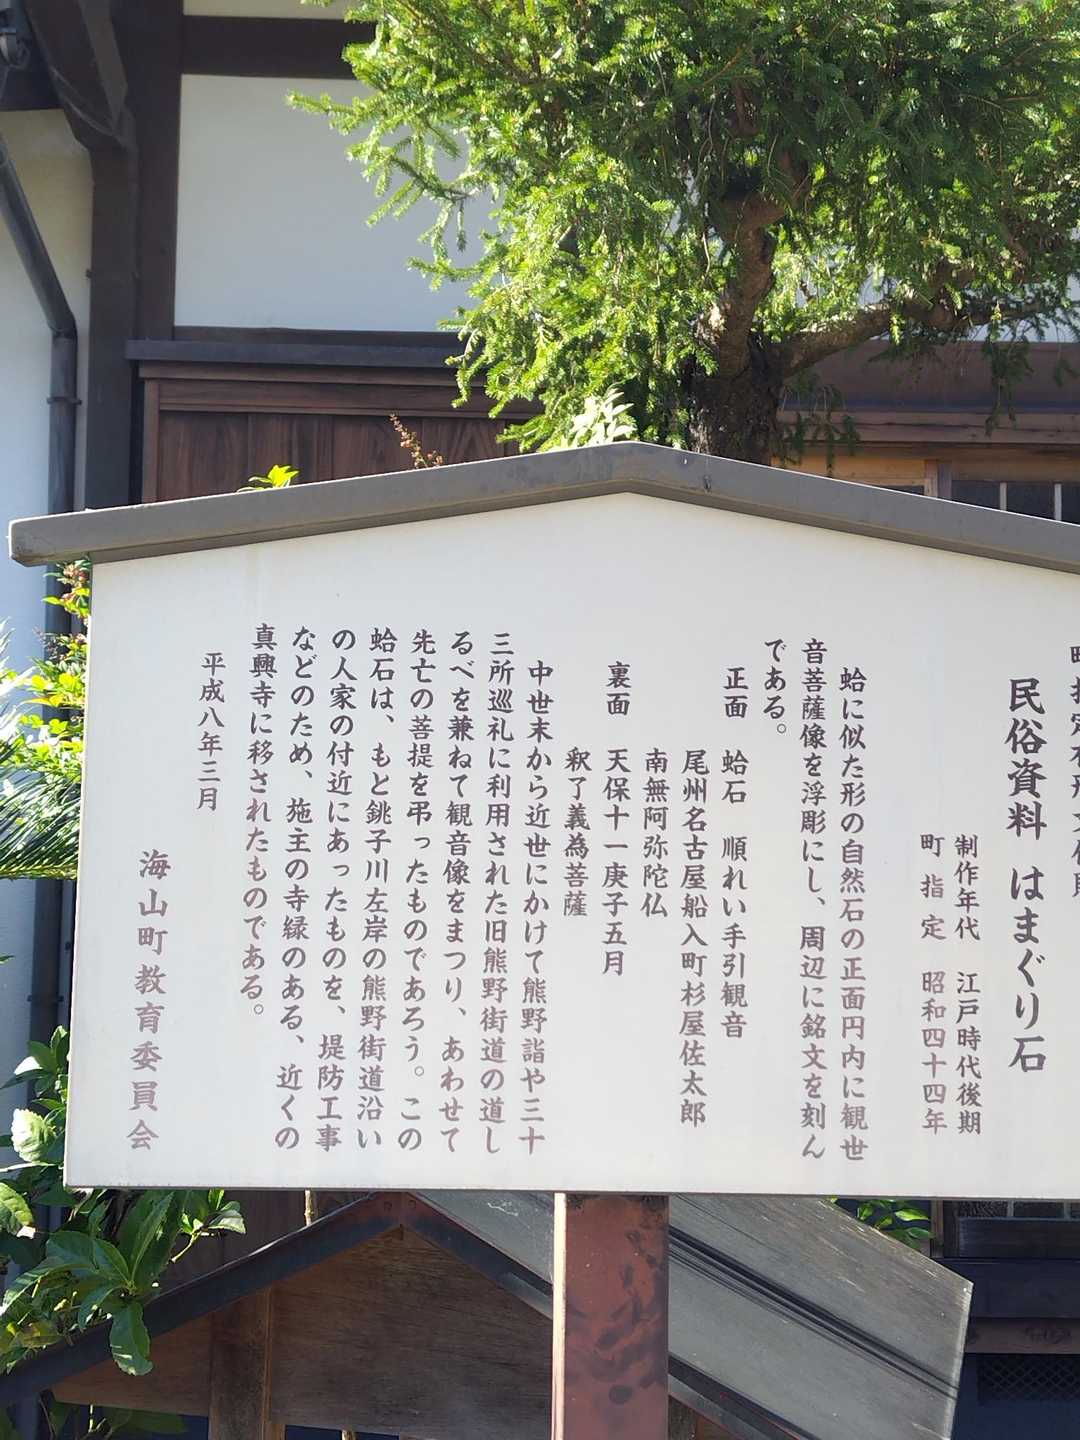 町指定有形文化財
民俗資料 はまぐり石
制作年代 江戸時代後期
町指定 昭和四十四年
蛤に似た形の自然石の正面円内に観世
音菩薩像を浮彫にし、周辺に銘文を刻ん
である。
正面 蛤石 順れい手引観音
尾州名古屋船入町杉屋佐太郎
南無阿弥陀仏
裏面 天保十一庚子五月
釈了義為菩薩
中世末から近世にかけて熊野詣や三十
三所巡礼に利用された旧熊野街道の道し
るべを兼ねて観音像をまつり、あわせて
先亡の菩提を弔ったものであろう。この
蛤石は、もと銚子川左岸の熊野街道沿い
の人家の付近にあったものを、堤防工事
などのため、施主の寺縁のある、近くの
真興寺に移されたものである。
平成八年三月
海山町教育委員会